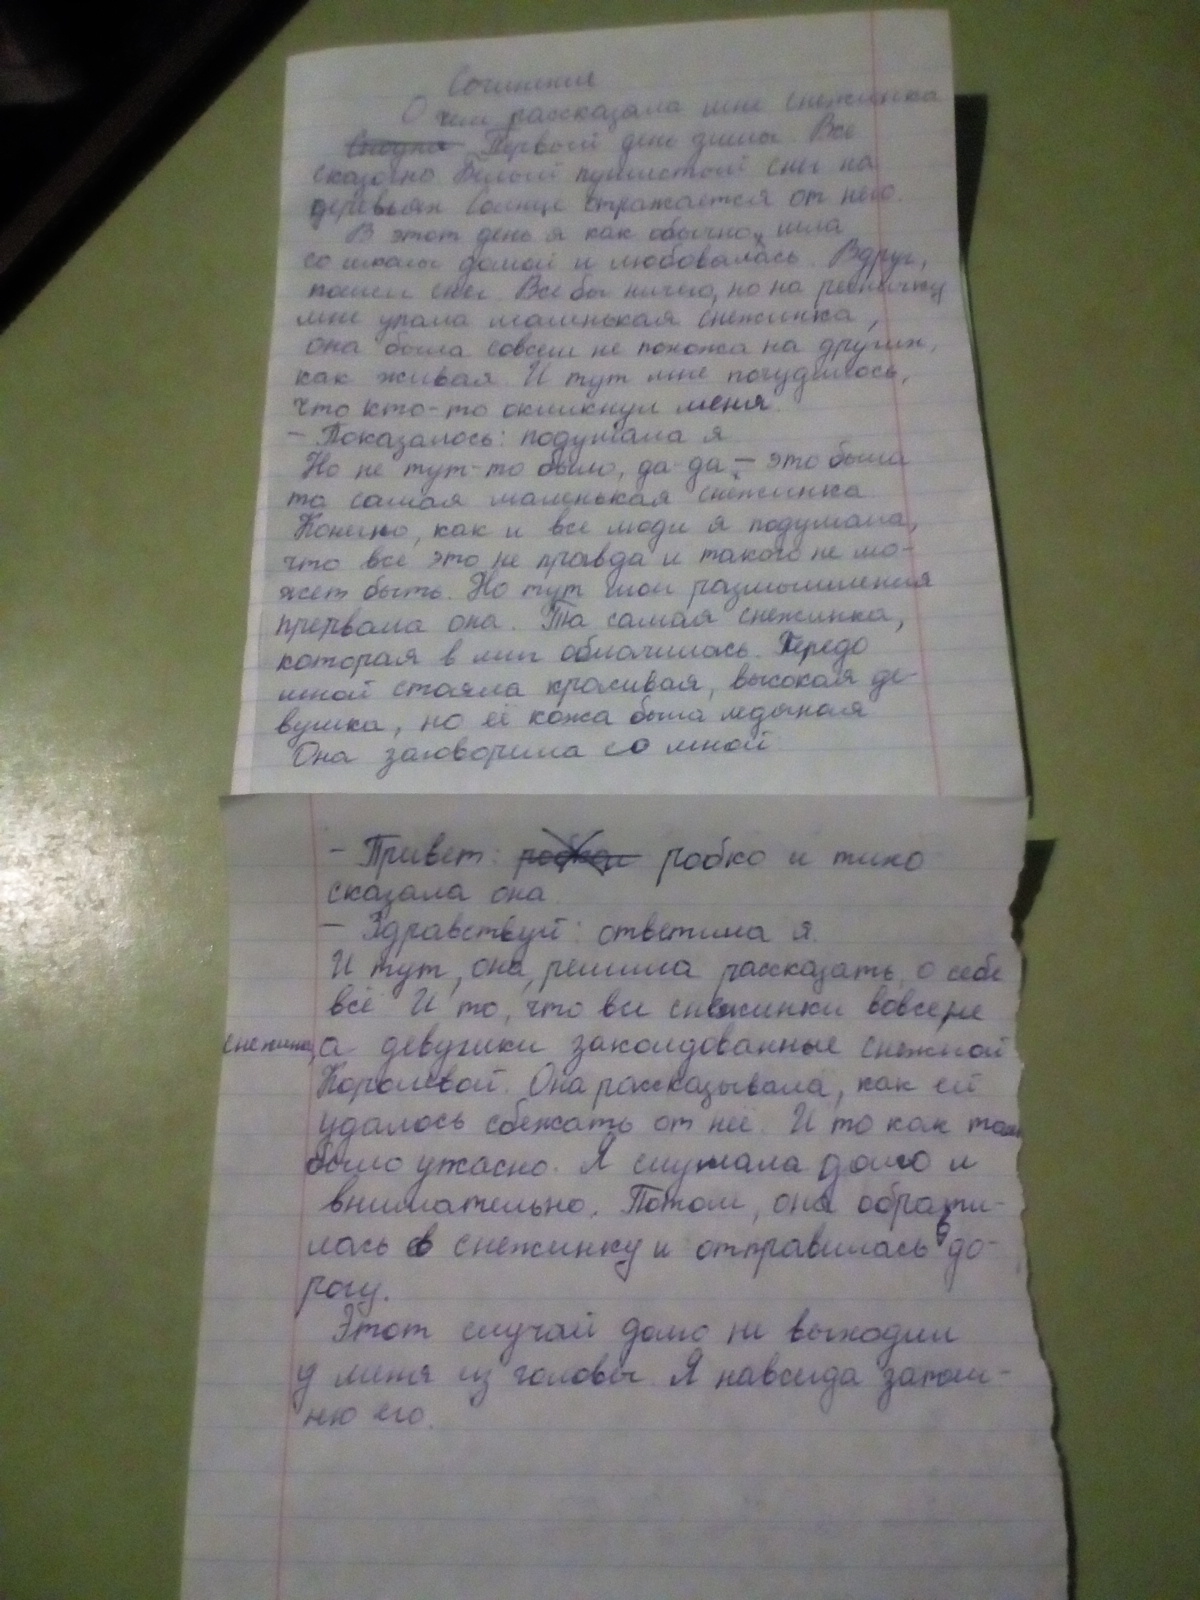 Сочинение
О чем рассказала мне снежинка
Первый день зимы. Все
сказочно. Белый пушистый снег на
деревьях. Солнце отражается от него.
В этот день я как обычно, шла
со школы домой и любовалась. Вдруг,
пошел снег. Все бы ничего, но на ресничку
мне упала маленькая снежинка,
она была совсем не похожа на других,
как живая. И тут мне почудилось,
что кто-то окликнул меня.
– Показалось: подумала я.
Но не тут-то было, да-да – это была
та самая маленькая снежинка.
Конечно, как и все люди я подумала,
что все это не правда и такого не мо-
жет быть. Но тут мои размышления
прервала она. Та самая снежинка,
которая в миг облачилась. Передо
мной стояла красивая, высокая де-
вушка, но её кожа была ледяная
Она заговорила со мной
– Привет: робко и тихо
сказала она.
– Здравствуй: ответила я.
И тут, она, решила рассказать, о себе
всё. И то, что все снежинки вовсе не
снежинки, а девушки заколдованные снежной
Королевой. Она рассказывала, как ей
удалось сбежать от неё. И то как там
было ужасно. Я слушала долго и
внимательно. Потом, она обрати-
лась в снежинку и отправилась в до-
рогу.
Этот случай долго не выходил
у меня из головы. Я навсегда запом-
ню его.